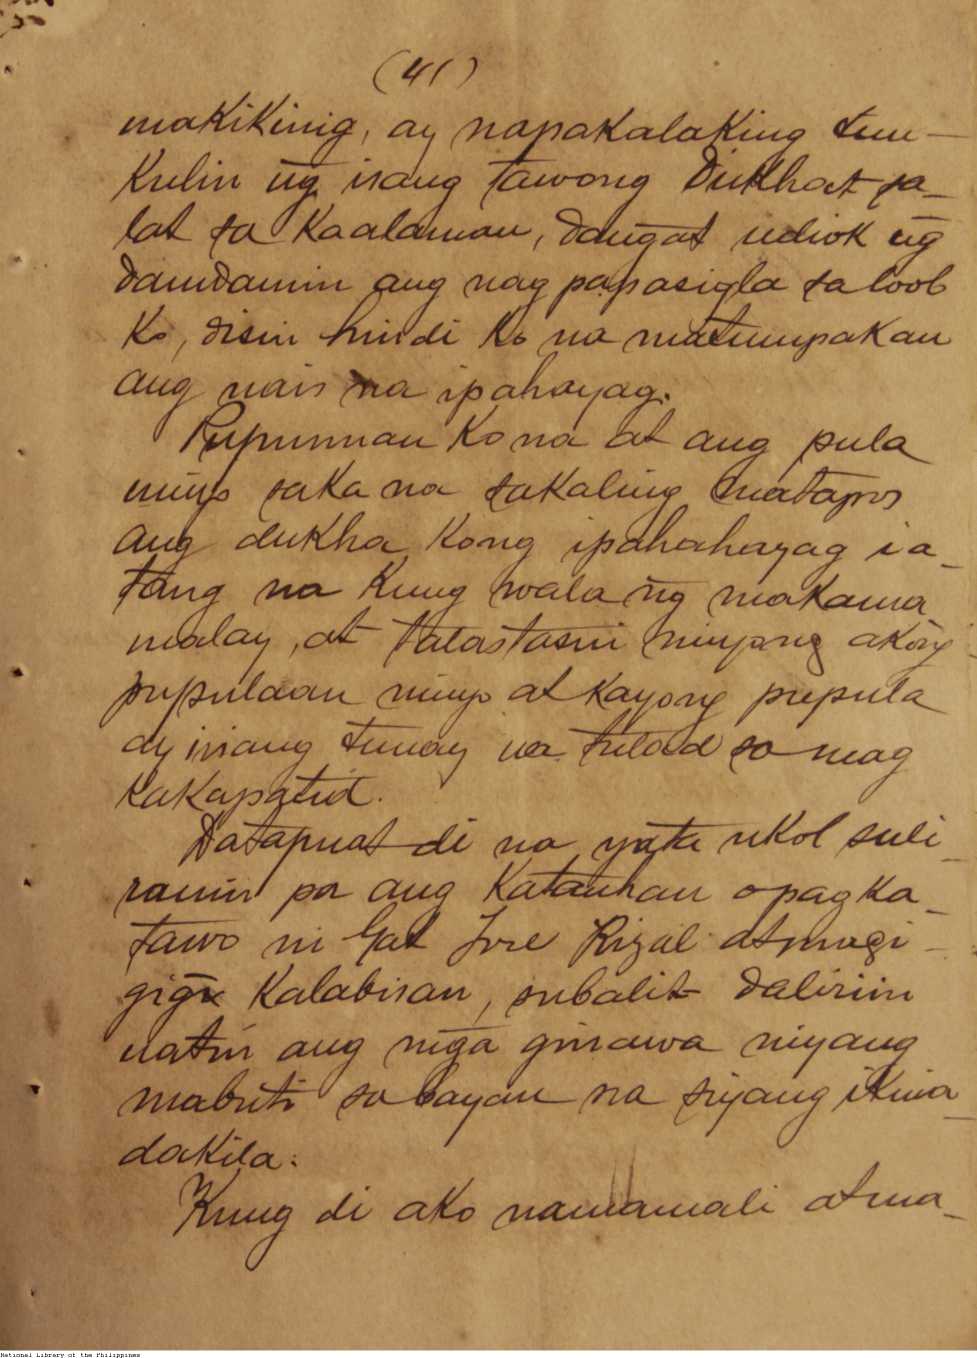 (41)
makikinig, ay napakalaking tun-
kulin ng̃ isang tawong Dukhat sa-
lat sa Kaalaman, dang̃at udiok ng̃
damdamin ang nag papasigla sa loob
Ko, disin hindi ko na matumpakan
ang nais na ipahayag.
Pupunnan Ko na at ang pula
ninyo saka na sakaling matapos
ang dukha Kong ipahahayag ia-
tang na Kung wala ng̃ makama
malay, at talastasin ninyong akõng
pupulaan ninyo at kayong pupula
ay isang tunay na tulad sa mag
kakapatid.
Datapuat di na yata ukol suli-
ranin pa ang Katauhan o pagka-
tawo ni Gat Jose Rizal at magi-
ging Kalabisan, subalit dalirin
natin ang mg̃a ginawa niyang
mabuti sa bayan na siyang ikina-
dakila.
Kung di ako namamali at ma-
National Library of the Philippines